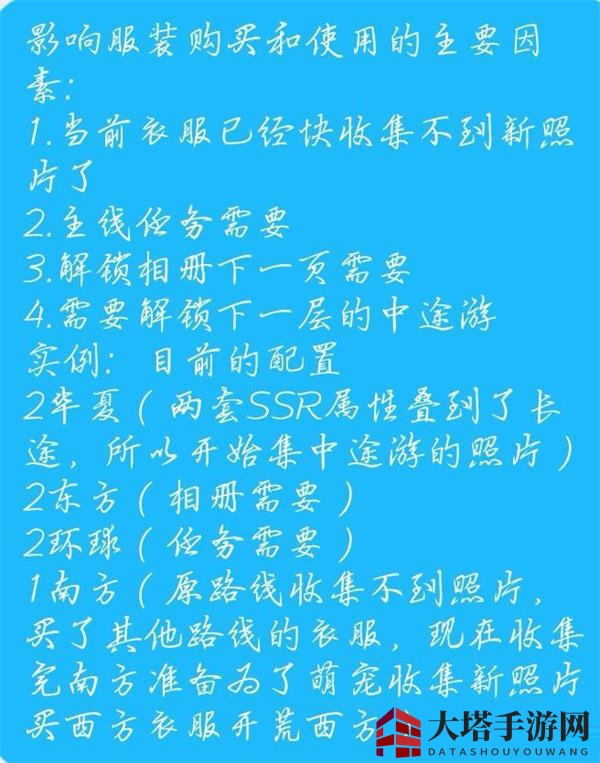 影响服装购买和使用的主要因
素：
1.当前衣服已经快收集不到新照
片了
2.主线任务需要
3.解锁相册下一页需要
4.需要解锁下一层的中途游
实例：目前的配置
2华夏（两套SSR属性叠到了长
途，所以开始集中途游的照片）
2东方（相册需要）
2环球（任务需要）
1南方（原路线收集不到照片，
买了其他路线的衣服，现在收集
完南方准备为了萌宠收集新照片
买西方衣服开荒西方
大塔手游网
DATASHOUYOUWANG